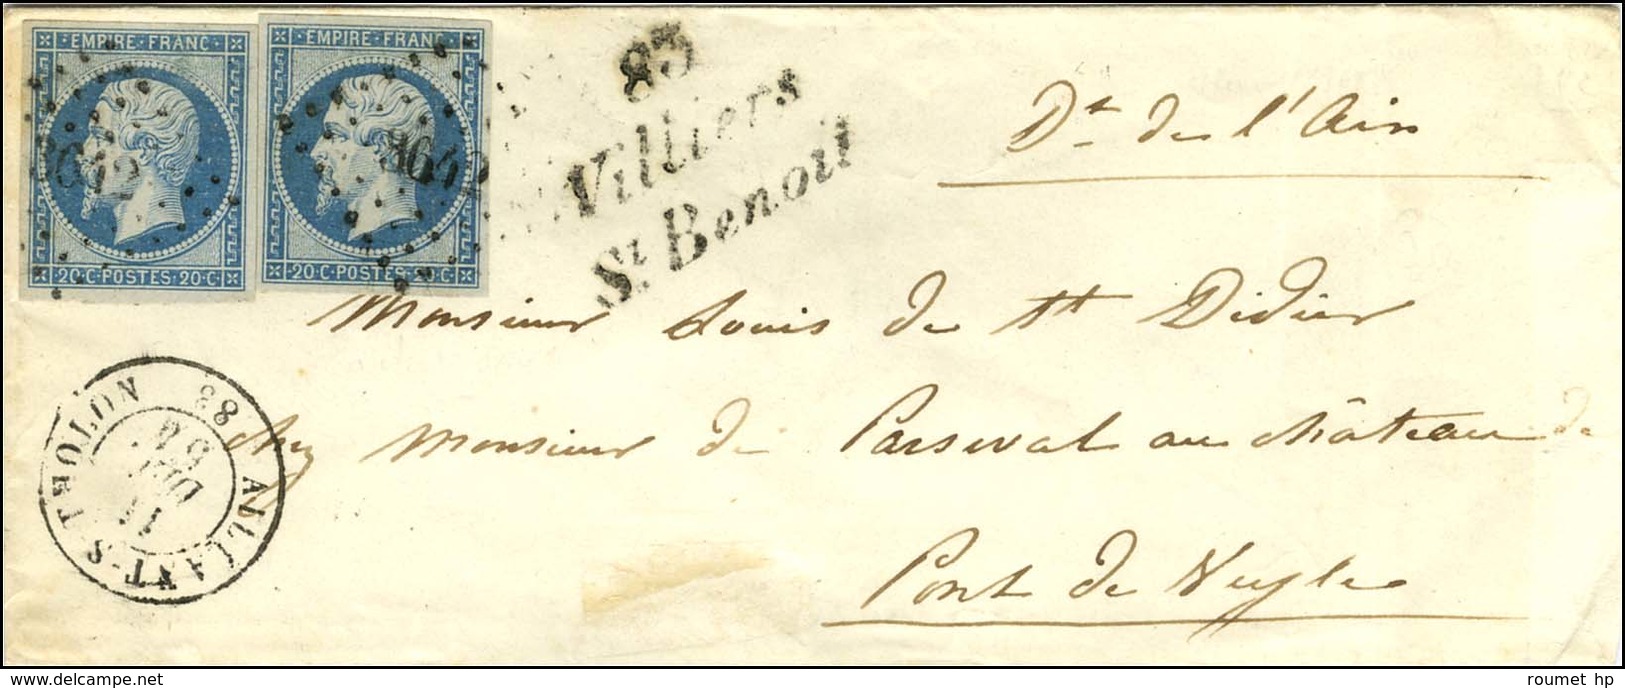 EMPIRE FRANC
EMPIRE FRANC
3642
3642
20·C·POSTES·20·C·
20·C·POSTES·20·C·
83
Villiers
St Benoit
Dt de l'Ain
Monsieur Louis de St Didier
chez Monsieur de Parseval au château de
Pont de Veyle
AILLANT-S-THOLON
88
11
DEC
roumet hp